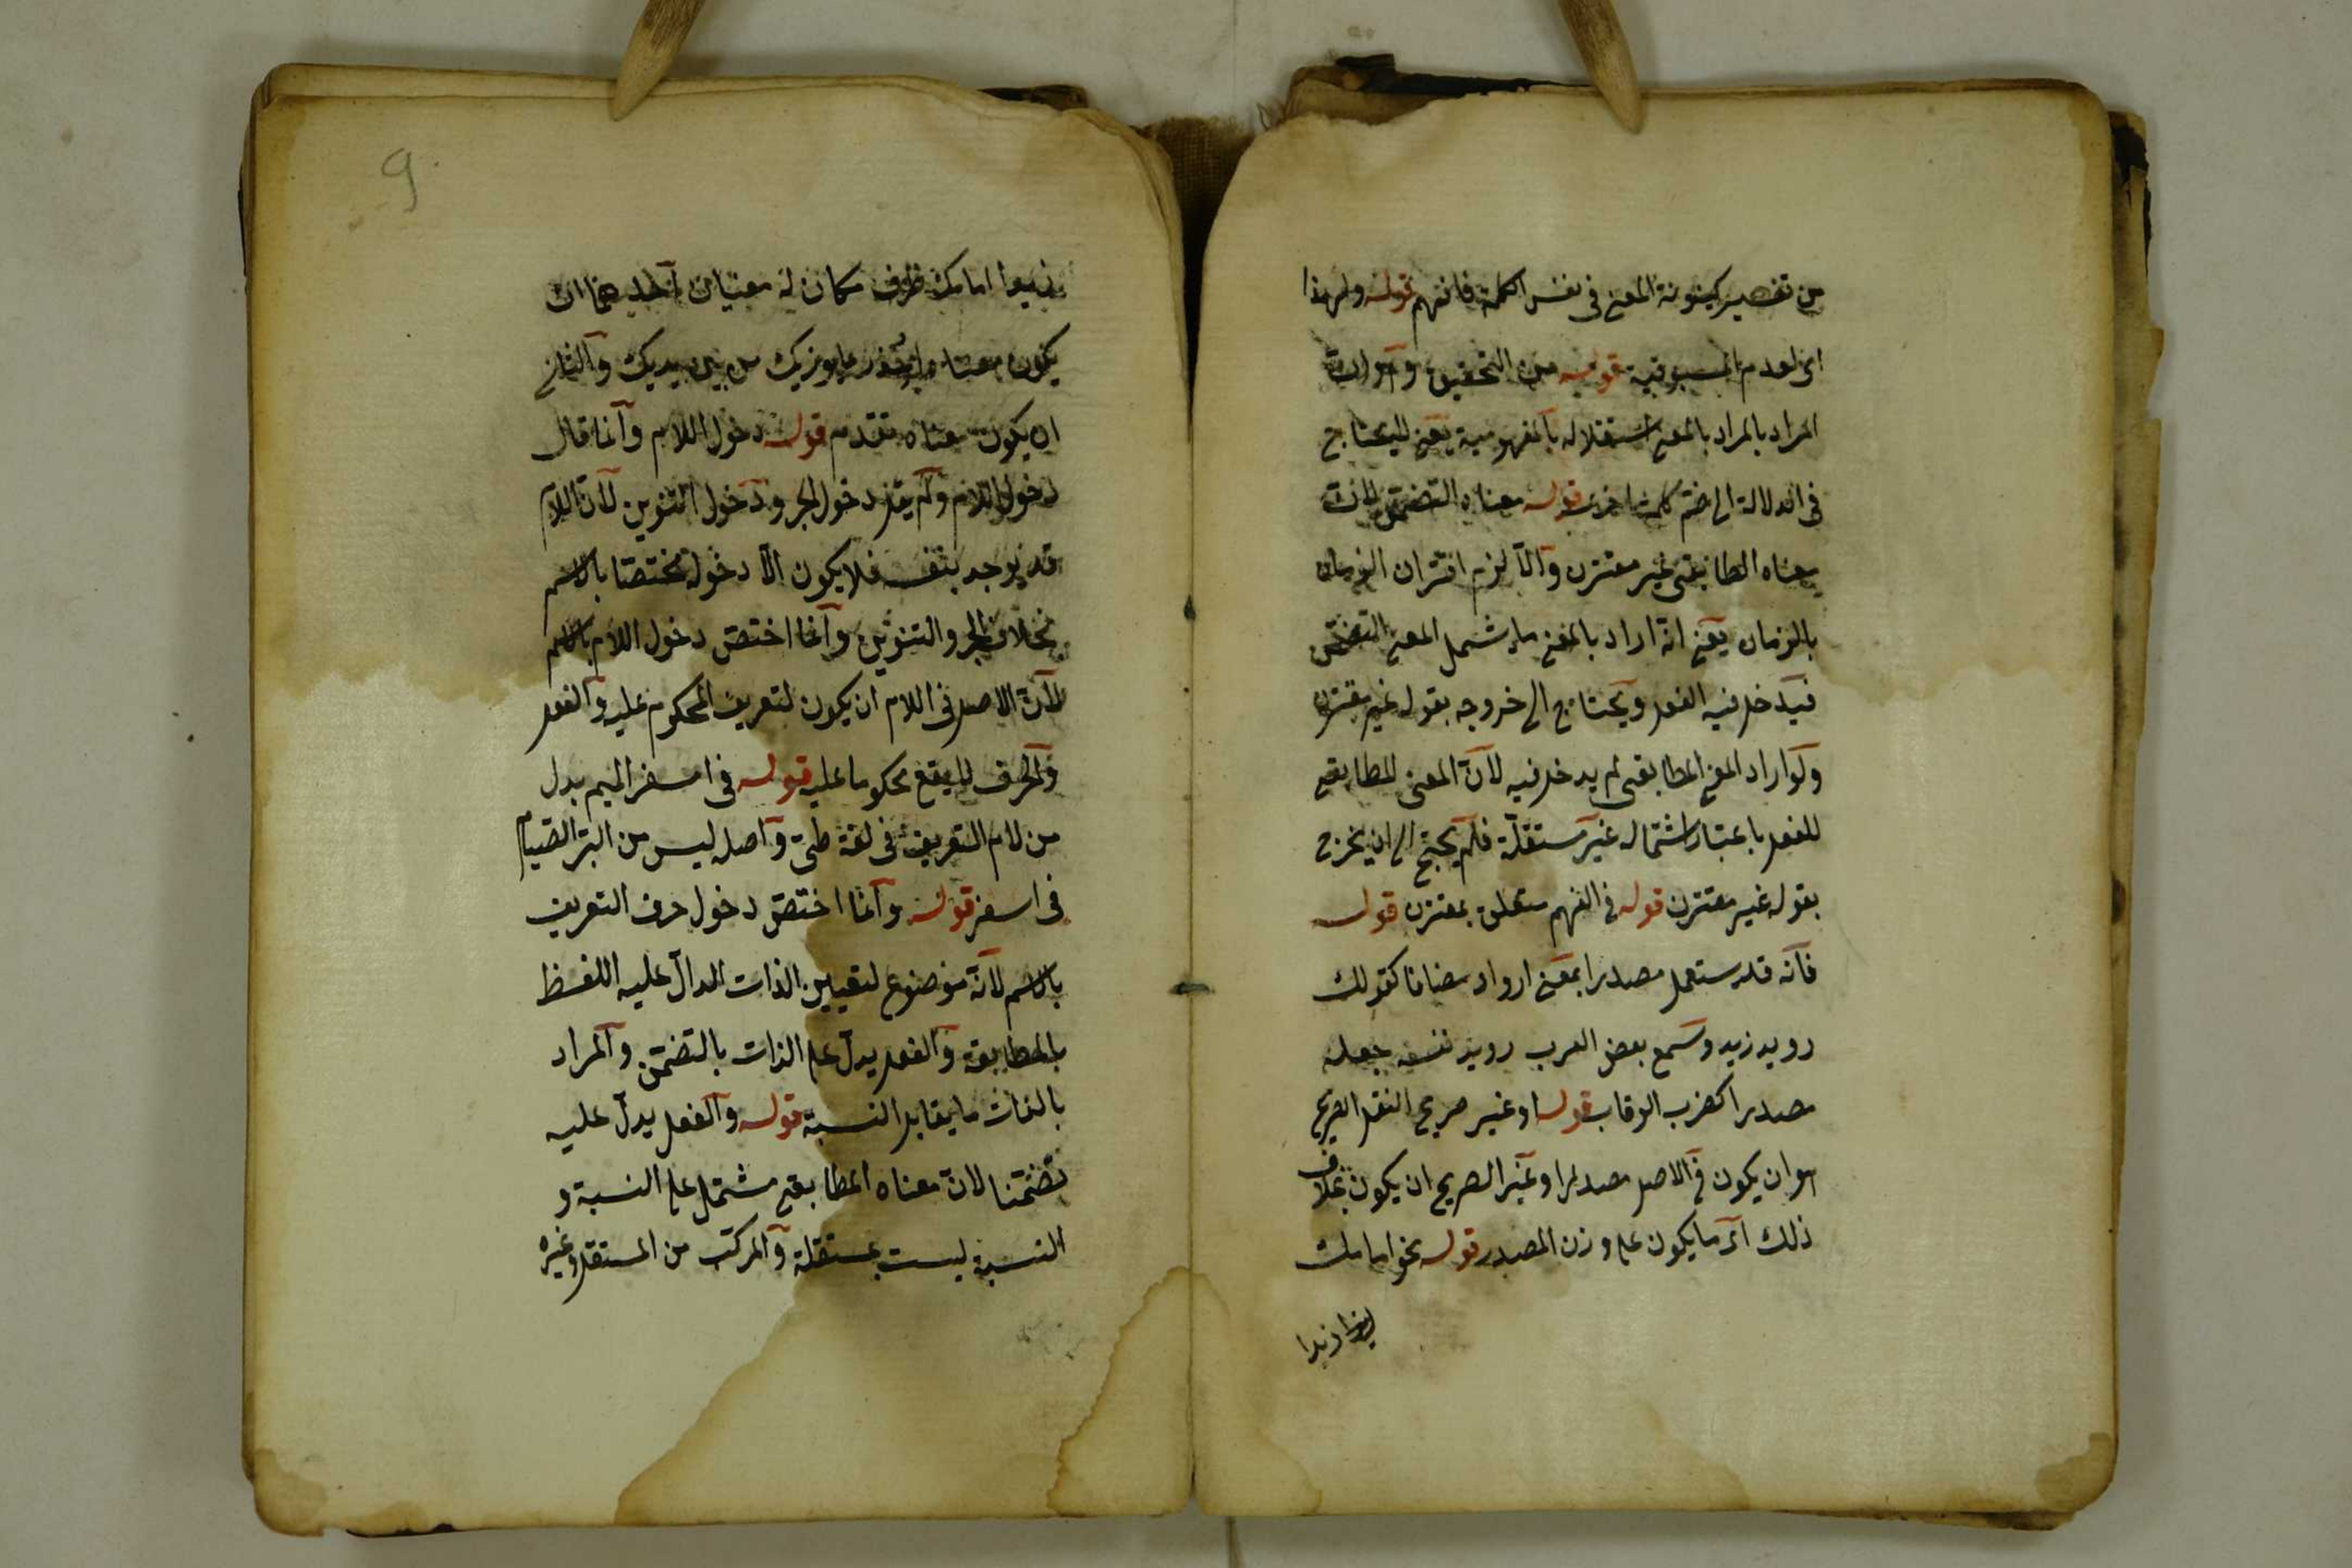 من تفسير كينونة المعنى في نفس الكلمة فافهم قوله ولهذا
اى لعدم المسبوقية قوله من التحقيق وهو ان
المراد بالمراد بالمعنى استقلاله بالمفهومية يعنى لا يحتاج
فى الدلالة الى ضم كلمة اخرى قوله معناه التضمنى لان
معناه المطابقى غير مقترن والا لزم اقتران الزمان
بالزمان يعنى انه اراد بالمعنى ما يشمل المعنى التضمنى
فيدخل فيه الفعل ويحتاج الى خروجه بقوله غير مقترن
ولو اراد المعنى المطابقى لم يدخل فيه لان المعنى المطابقى
للفعل باعتبار اشتماله غير مستقلة فلم يحتج الى ان يخرج
بقوله غير مقترن قوله فى الفهم متعلق بمقترن قوله
فانه قد يستعمل مصدرا بمعنى ارواد مضافا كقولك
رويد زيد وسمع بعض العرب رويد نفسه جعله
مصدرا كضرب الرقاب قوله او غير صريح النقل الصريح
هو ان يكون فى الاصل مصدرا وغير الصريح ان يكون بخلاف
ذلك اى ما يكون على وزن المصدر قوله نحو امامك
زيدا
9
زيدا امامك ظرف مكان له معنيان احدهما ان
يكون معناه من بين يديك والثانى
ان يكون معناه تقدم قوله دخول اللام وانما قال
دخول اللام ولم يقل دخول الجر ودخول التنوين لان اللام
قد يوجد بنفسه فلا يكون الا دخوله مختصا بالاسم
بخلاف الجر والتنوين وانما اختص دخول اللام بالاسم
لان الاصل فى اللام ان يكون لتعريف المحكوم عليه والفعل
والحرف لا يقع محكوما عليه قوله فى امسفر الميم بدل
من لام التعريف فى لغة طى واصله ليس من البر الصيام
فى السفر قوله وانما اختص دخول حرف التعريف
بالاسم لانه موضوع لتعيين الذات المدال عليه اللفظ
بالمطابقة والفعل يدل على الذات بالتضمن والمراد
بالذات ما يقابل النسبة قوله والفعل يدل عليه
تضمنا لان معناه المطابقى مشتمل على النسبة و
النسبة ليست بمستقلة والمركب من المستقل وغيره